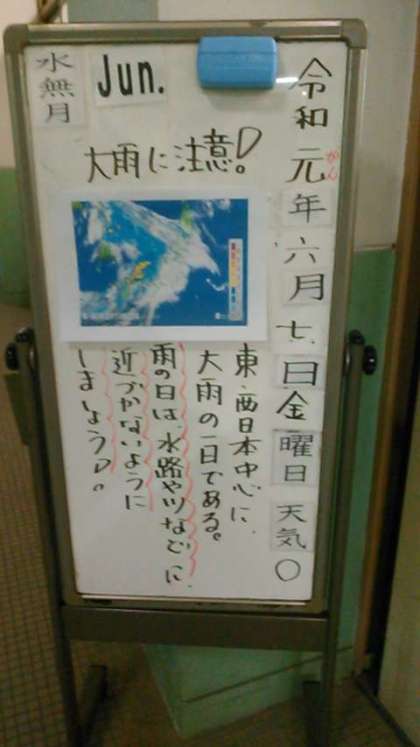 令和元年六月七日金曜日天気〇
がん
水無月
Jun.
大雨に注意!
東・西日本中心に、
大雨の一日である。
雨の日は、水路や川などに、
近づかないように
しましょう!。